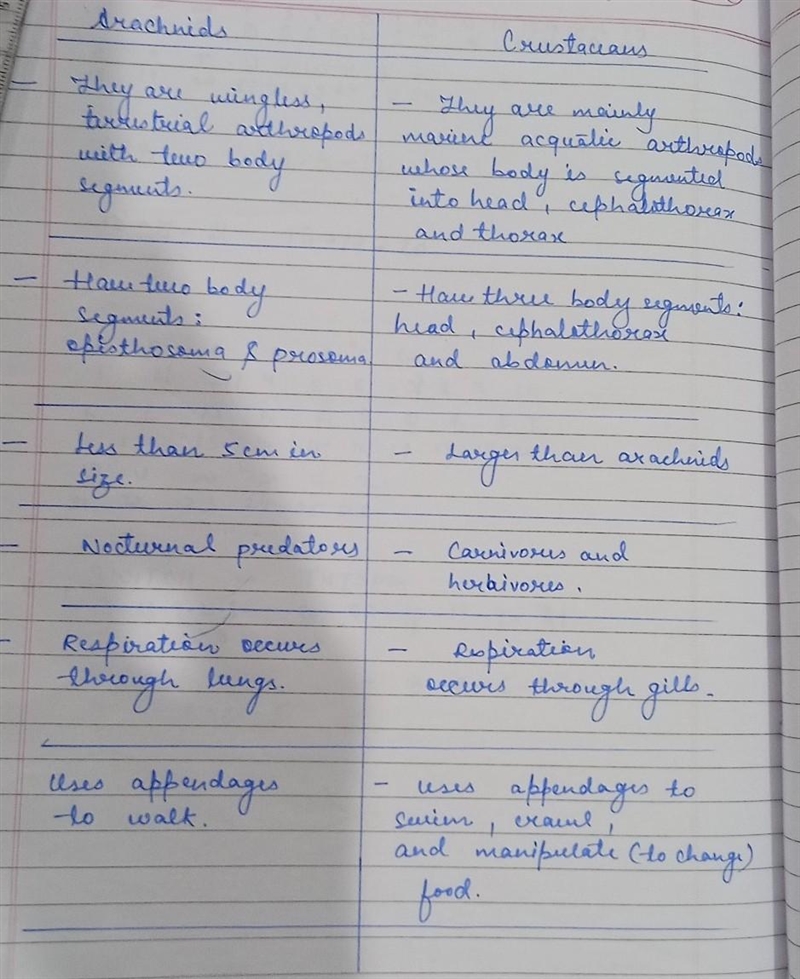 Arachnids
They are wingless,
terrestrial arthropods
with two body
segments.
Have two body
segments:
opisthosoma & prosoma
Less than 5cm in
size.
Nocturnal predators
Respiration occurs
through lungs.
Uses appendages
to walk.
Crustaceans
- They are mainly
marine acquatic arthropods
whose body is segmented
into head, cephalothorax
and thorax
- Have three body segments:
head, cephalothorax
and abdomen.
- Larger than arachnids
- Carnivores and
herbivores.
- Respiration
occurs through gills.
- Uses appendages to
swim, crawl,
and manipulate (to change)
food.